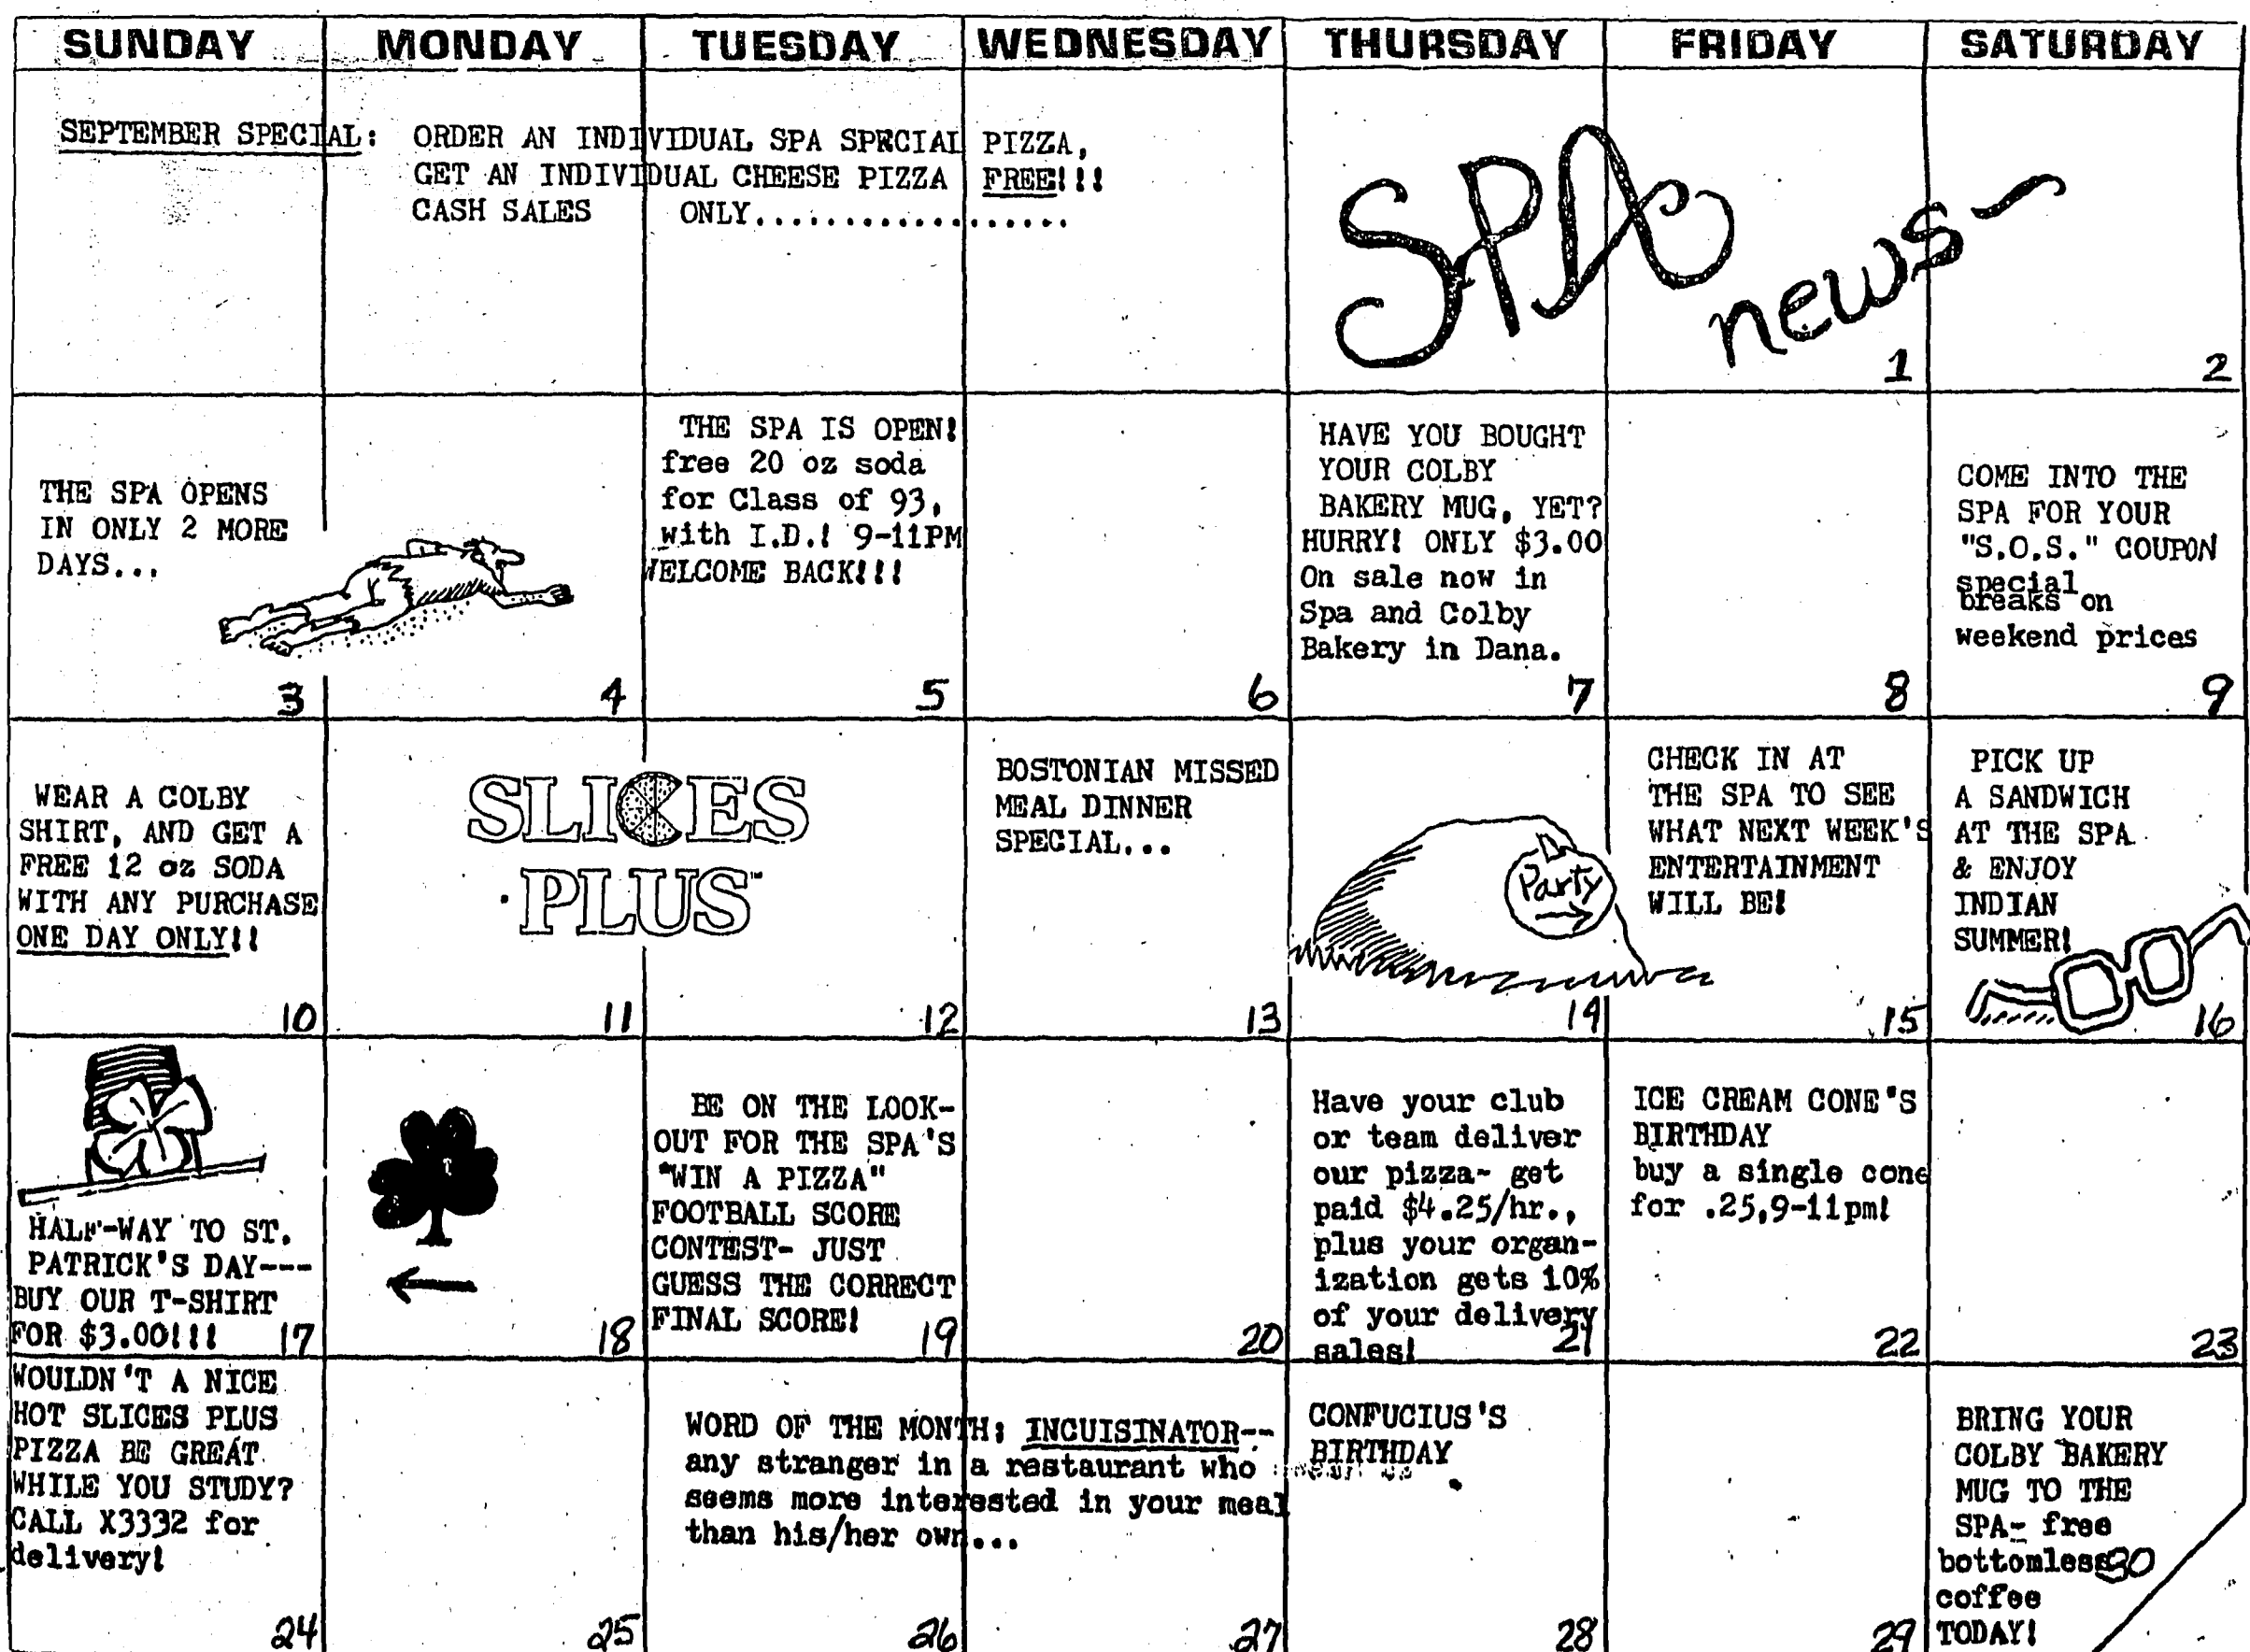 SUNDAY MONDAY TUESDAY WEDNESDAY THURSDAY FRIDAY SATURDAY
SEPTEMBER SPECIAL: ORDER AN INDIVIDUAL SPA SPECIAL PIZZA,
GET AN INDIVIDUAL CHEESE PIZZA FREE!!!
CASH SALES ONLY...................
SPA
news
1
2
THE SPA OPENS
IN ONLY 2 MORE
DAYS...
3
4
THE SPA IS OPEN!
free 20 oz soda
for Class of 93,
with I.D.! 9-11PM
WELCOME BACK!!!
5
6
HAVE YOU BOUGHT
YOUR COLBY
BAKERY MUG, YET?
HURRY! ONLY $3.00
On sale now in
Spa and Colby
Bakery in Dana.
7
8
COME INTO THE
SPA FOR YOUR
"S.O.S." COUPON
special
breaks on
weekend prices
9
WEAR A COLBY
SHIRT, AND GET A
FREE 12 oz SODA
WITH ANY PURCHASE
ONE DAY ONLY!!
10
SLICES
PLUS™
11
12
BOSTONIAN MISSED
MEAL DINNER
SPECIAL...
13
Party
14
CHECK IN AT
THE SPA TO SEE
WHAT NEXT WEEK'S
ENTERTAINMENT
WILL BE!
15
PICK UP
A SANDWICH
AT THE SPA
& ENJOY
INDIAN
SUMMER!
16
HALF-WAY TO ST.
PATRICK'S DAY---
BUY OUR T-SHIRT
FOR $3.00!!!
17
18
BE ON THE LOOK-
OUT FOR THE SPA'S
"WIN A PIZZA"
FOOTBALL SCORE
CONTEST- JUST
GUESS THE CORRECT
FINAL SCORE!
19
20
Have your club
or team deliver
our pizza- get
paid $4.25/hr.,
plus your organ-
ization gets 10%
of your delivery
sales!
21
ICE CREAM CONE'S
BIRTHDAY
buy a single cone
for .25,9-11pm!
22
23
WOULDN'T A NICE
HOT SLICES PLUS
PIZZA BE GREAT
WHILE YOU STUDY?
CALL X3332 for
delivery!
24
25
WORD OF THE MONTH: INCUISINATOR--
any stranger in a restaurant who
seems more interested in your meal
than his/her own...
26
27
CONFUCIUS'S
BIRTHDAY
28
29
BRING YOUR
COLBY BAKERY
MUG TO THE
SPA- free
bottomless
coffee
TODAY!
30